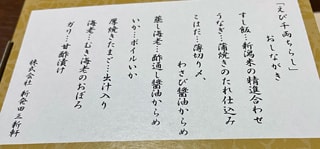 「えび千両ちらし」
おしながき
すし飯…新潟米の特進合わせ
うなぎ…蒲焼きのたれ仕込み
こはだ…薄切り〆、
わさび醤油からめ
蒸し海老…酢通し醤油からめ
いか…ボイルいか
厚焼きたまご…出汁入り
海老…むき海老のおぼろ
ガリ…甘酢漬け
株式会社 新発田三新軒